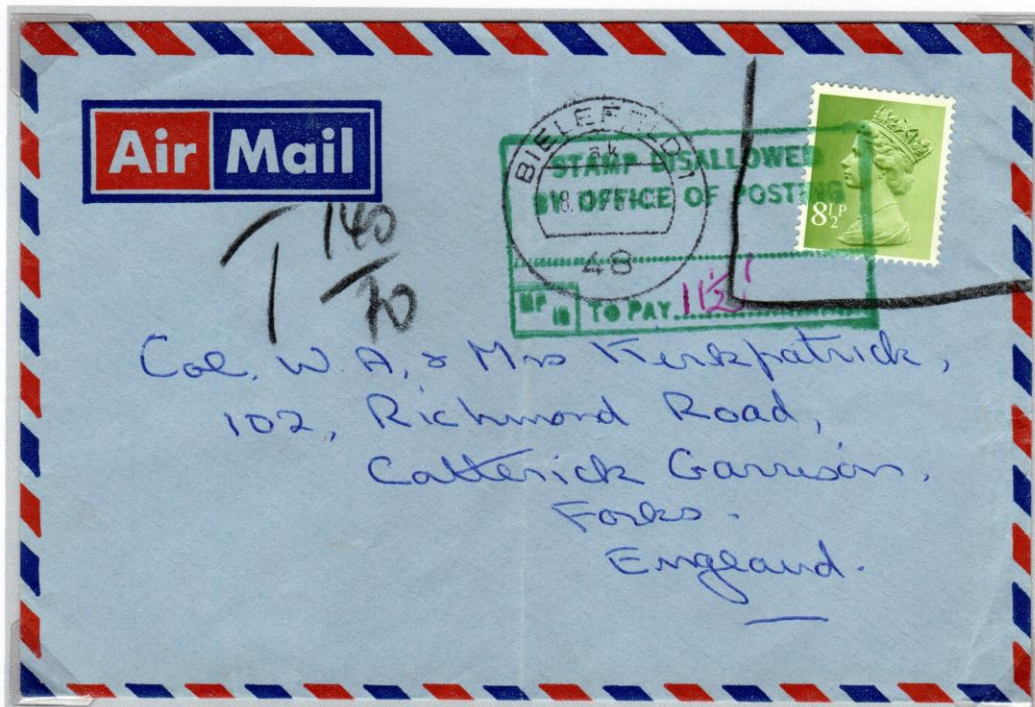 Air Mail
BIELEFELD 1
STAMP DISALLOWED
BY OFFICE OF POSTING
8½P
48
TO PAY 11½
T 140
70
Col. W. A. & Mrs Kirkpatrick,
102, Richmond Road,
Catterick Garrison,
Yorks.
England.